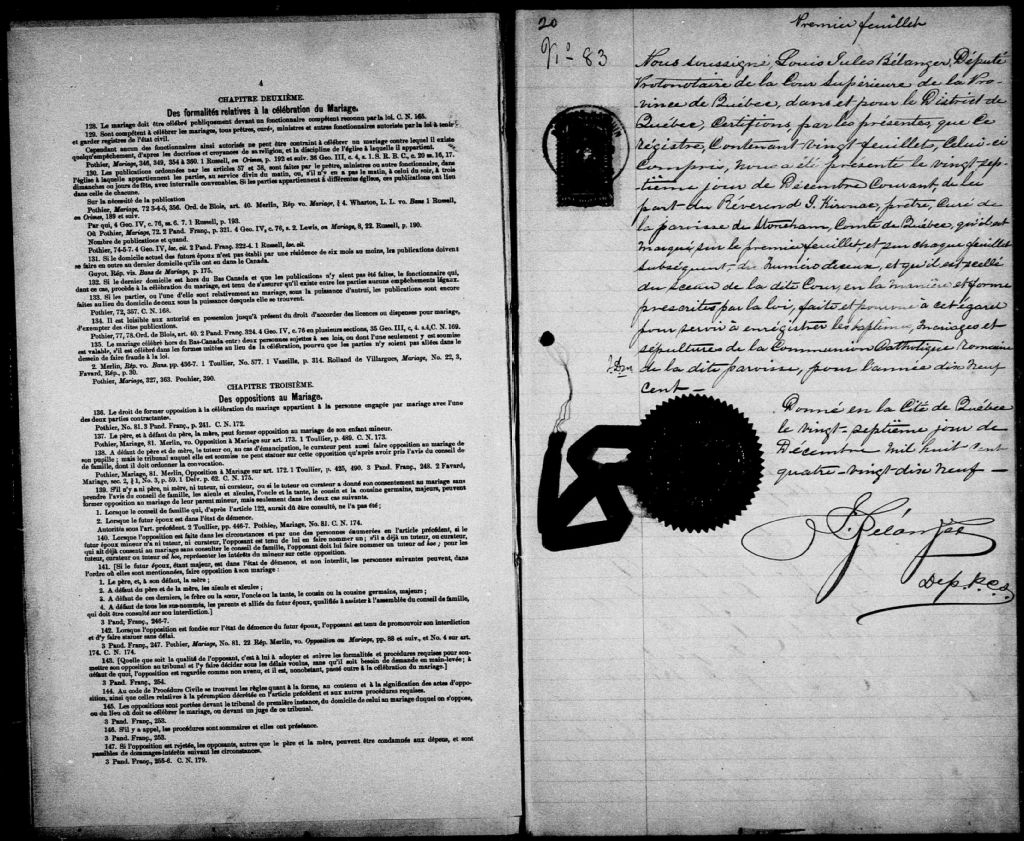 4
CHAPITRE DEUXIÈME.
Des formalités relatives à la célébration du Mariage.
128. Le mariage doit être célébré publiquement devant un fonctionnaire compétent reconnu par la loi. C. N. 165.
129. Sont compétents à célébrer les mariages, tous prêtres, curés, ministres et autres fonctionnaires autorisés par la loi à tenir
et garder registres de l'état civil.
Cependant aucun des fonctionnaires ainsi autorisés ne peut être contraint à célébrer un mariage contre lequel il existe
quelqu'empêchement, d'après les doctrines et croyances de sa religion, et la discipline de l'église à laquelle il appartient.
Pothier, Mariage, 346, 349, 354 & 360. 1 Russell, on Crimes, p. 192 et suiv. 36 Geo. III, c. 4, s. 1. S. R. B. C., c. 20 ss. 16, 17.
130. Les publications ordonnées par les articles 57 et 58, sont faites par le prêtre, ministre ou autre fonctionnaire, dans
l'église à laquelle appartiennent les parties, au service divin du matin, ou, s'il n'y en a pas le matin, à celui du soir, à trois
dimanches ou jours de fête, avec intervalle convenables. Si les parties appartiennent à différentes églises, ces publications ont lieu
dans celle de chacune.
Sur la nécessité de la publication
Pothier, Mariage, 72 3-4-5, 356. Ord. de Blois, art. 40. Merlin, Rép vo. Mariage, § 4. Wharton, L. L. vo. Bans 1 Russell,
on Crimes, 189 et suiv.
Par qui, 4 Geo. IV, c. 76, ss. 6. 7. 1 Russell, p. 193.
Où Pothier, Mariage, 72. 2 Pand. Franç. p. 321. 4 Geo. IV, c. 76, s. 2. Lewis, on Mariage, 8, 22. Russell, p. 190.
Nombre de publications et quand.
Pothier, 74-5-7. 4 Geo. IV, loc. cit. 2 Pand. Franç. 322-4. 1 Russell, loc. cit.
131. Si le domicile actuel des futurs époux n'est pas établi par une résidence de six mois au moins, les publications doivent
se faire en outre au dernier domicile qu'ils ont eu dans le Canada.
Guyot, Rép. vis. Bans de Mariage, p. 175.
132. Si le dernier domicile est hors du Bas Canada et que les publications n'y aient pas été faites, le fonctionnaire qui,
dans ce cas, procède à la célébration du mariage, est tenu de s'assurer qu'il existe entre les parties aucuns empêchements légaux.
133. Si les parties, ou l'une d'elles sont relativement au mariage, sous la puissance d'autrui, les publications sont encore
faites au lieu du domicile de ceux sous la puissance desquels elle se trouvent.
Pothier, 72, 357. C. N. 168.
134. Il est loisible aux autorité en possession jusqu'à présent du droit d'accorder des licences ou dispenses pour mariage,
d'exempter des dites publications.
Pothier, 77, 78. Ord. de Blois, art. 40. 2 Pand. Franç. 324. 4 Geo. IV, c. 76 en plusieurs sections, 35 Geo. III, c. 4, s. 4, C. N. 169.
135. Le mariage célébré hors du Bas-Canada entre deux personnes sujettes à ses lois, ou dont l'une seulement y est soumise
est valable, s'il est célébré dans les formes usitées au lieu de la célébration, pourvu que les parties n'y soient pas allées dans le
dessein de faire fraude à la loi.
2. Merlin, Rép. vo. Bans. pp. 456-7. 1 Toullier, No. 577. 1 Vazeille, p. 314. Rolland de Villargues, Mariage, No. 22, 3,
Favard, Rép., p. 30.
Pothier, Mariage, 327, 363. Pouhier, 390.
CHAPITRE TROISIÈME.
Des oppositions au Mariage.
136. Le droit de former opposition à la célébration du mariage appartient à la personne engagée par mariage avec l'une
des deux parties contractantes.
Pothier, No. 81. 3 Pand Franç., p. 241. C. N. 172.
137. Le père, et à défaut du père, la mère, peut former opposition au mariage de son enfant mineur.
Pothier, Mariage, 81. Merlin, vo. Opposition à Mariage sur art. 173. 1 Toullier, p. 489. C. N. 173.
138. A défaut de père et de mère, le tuteur, ou, au cas d'émancipation, le curateur peut aussi faire opposition au mariage de
son pupille; mais le tribunal auquel elle est soumise ne peut statuer sur cette opposition qu'après avoir pris l'avis du conseil de
famille, dont il doit ordonner la convocation.
Pothier, Mariage, 81. Merlin, Opposition à Mariage sur art. 172. 1 Toullier, p. 425, 490. 3 Pand. Franç., 248. 2 Favard,
Mariage, sec. 2, § 1, No. 3, p. 59. 1 Delv. p. 62. C. N. 175.
139. S'il n'y a ni père, ni mère, ni tuteur, ni curateur, ou si le tuteur ou curateur a donné son consentement au mariage sans
prendre l'avis du conseil de famille, les aïeuls et aïeules, l'oncle et la tante, le cousin et la cousine germains, majeurs, peuvent
former opposition au mariage de leur parent mineur, mais seulement dans les deux cas suivants.
1. Lorsque le conseil de famille qui, d'après l'article 122, aurait dû être consulté, ne l'a pas été;
2. Lorsque le futur époux est dans l'état de démence.
Autorités sous l'art. précédent. 2 Toullier, pp. 446-7. Pothier, Mariage, No. 81. C N. 174.
140. Lorsque l'opposition est faite dans les circonstances et par une des personnes énumérées en l'article précédent, si le
futur époux mineur n'a ni tuteur, ni curateur, l'opposant est tenu de lui en faire nommer un; s'il a déjà un tuteur, ou curateur,
qui ait déjà consenti au mariage sans consulter le conseil de famille, l'opposant doit lui faire nommer un tuteur ad hoc; pour les
tuteur, curateur ou tuteur ad hoc, représenter les intérêts du mineur sur cette opposition.
141. [Si le futur époux, étant majeur, est dans l'état de démence, et non interdit, les personnes suivantes peuvent, dans
l'ordre où elles sont mentionnées, faire opposition à son mariage:
1. Le père, et, à son défaut, la mère;
2. A défaut du père et de la mère, les aïeuls et aïeules;
3. A défaut de ces derniers, le frère ou la sœur, l'oncle ou la tante, le cousin ou la cousine germains, majeurs;
4. A défaut de tous les sus-nommés, les parents et alliés du futur époux, qualifiés à assister à l'assemblée du conseil de famille,
qui doit être consulté sur son interdiction.]
3 Pand; Franç., 246-7.
142. Lorsque l'opposition est fondée sur l'état de démence du futur époux, l'opposant est tenu de promouvoir son interdiction
et d'y faire statuer sans délai.
3 Pand. Franç., 247. Pothier, Mariage, No. 81. 22 Rép. Merlin, vo. Opposition au Mariage, pp. 88 et suiv., et No. 4 sur art.
174. C. N. 174.
143. [Quelle que soit la qualité de l'opposant, c'est à lui à adopter et suivre les formalités et procédures requises pour sou-
mettre son opposition au tribunal et l'y faire décider sous les délais voulus, sans qu'il soit besoin de demande en main-levée; à
défaut de quoi, l'opposition est regardée comme non avenu, et il est, nonobstant, passé outre à la célébration du mariage.]
3 Pand. Franç., 254.
144. Au code de Procédure Civile se trouvent les règles quant à la forme, au contenu et à la signification des actes d'oppo-
sition, ainsi que celles relatives à la péremption décrétée en l'article précédent et aux autres procédures requises.
145. Les oppositions sont portées devant le tribunal de première instance, du domicile de celui au mariage duquel on s'oppose,
ou du lieu où doit se célébrer le mariage, ou devant un juge de ce tribunal.
3 Pand. Franç., 253.
146. S'il y a appel, les procédures sont sommaires et elles ont préséance.
3 Pand. Franç., 253.
147. Si l'opposition est rejetée, les opposants, autres que le père et la mère, peuvent être condamnés aux dépens, et sont
passibles de dommages-intérêts suivant les circonstances.
3 Pand. Franç., 255-6. C. N. 179.
20
Premier feuillet
No 83
Nous soussigné, Louis Jules Bélanger, Député
Protonotaire de la Cour Supérieure de la Pro-
vince de Québec, dans et pour le District de
Québec, Certifions par les présentes, que Ce
régistre, Contenant vingt feuillets, Celui-ci
Compris, nous a été présenté le vingt-sep-
tième jour de Décembre Courant, de la
part du Révérend J. Kirouac, prêtre, Curé de
la paroisse de Stoneham, Comté de Québec, qu'il est
marqué sur le premier feuillet, et sur chaque feuillet
subséquent du numéro d'iceux, et qu'il est scellé
du sceau de la dite Cour, en la manière et forme
prescrites par la loi, faite et pourvu à cet égard
pour servir à enrégistrer les baptêmes, mariages et
sépultures de la Communion Catholique romaine
de la dite paroisse, pour l'année dix neuf
cent —
Donné en la Cité de Québec
le vingt-septième jour de
Décembre mil huit cent
quatre-vingt-dix neuf —
J. Bélanger
Dep. P.C.S.